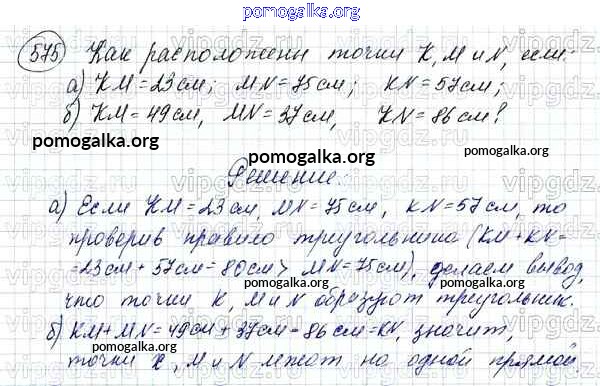 pomogalka.org
575 Как расположены точки K, M и N, если:
а) KM = 23 см; MN = 75 см; KN = 57 см;
б) KM = 49 см, MN = 37 см, KN = 86 см?
pomogalka.org pomogalka.org pomogalka.org
Решение:
а) Если KM = 23 см, MN = 75 см, KN = 57 см, то
проверив правило треугольника (KM + KN =
= 23 см + 57 см = 80 см > MN = 75 см), делаем вывод,
что точки K, M и N образуют треугольник.
б) KM + MN = 49 см + 37 см = 86 см = KN, значит,
точки K, M и N лежат на одной прямой
pomogalka.org pomogalka.org